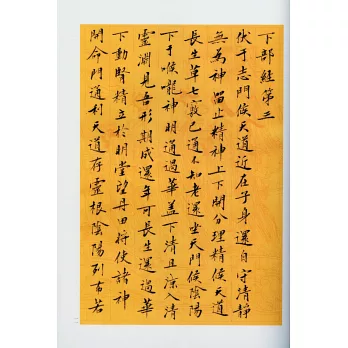 下部經第三
伏于志門候天道近在子身還自守清靜
無為神留止精神上下開分理精候天道
長生草七竅已通不知老還坐天門候陰陽
下于喉嚨神明通過華蓋下清且涼入清
靈淵見吾形期成還年可長生還過華
下動腎精立於明堂望丹田將使諸神
開命門通利天道存靈根陰陽列布若